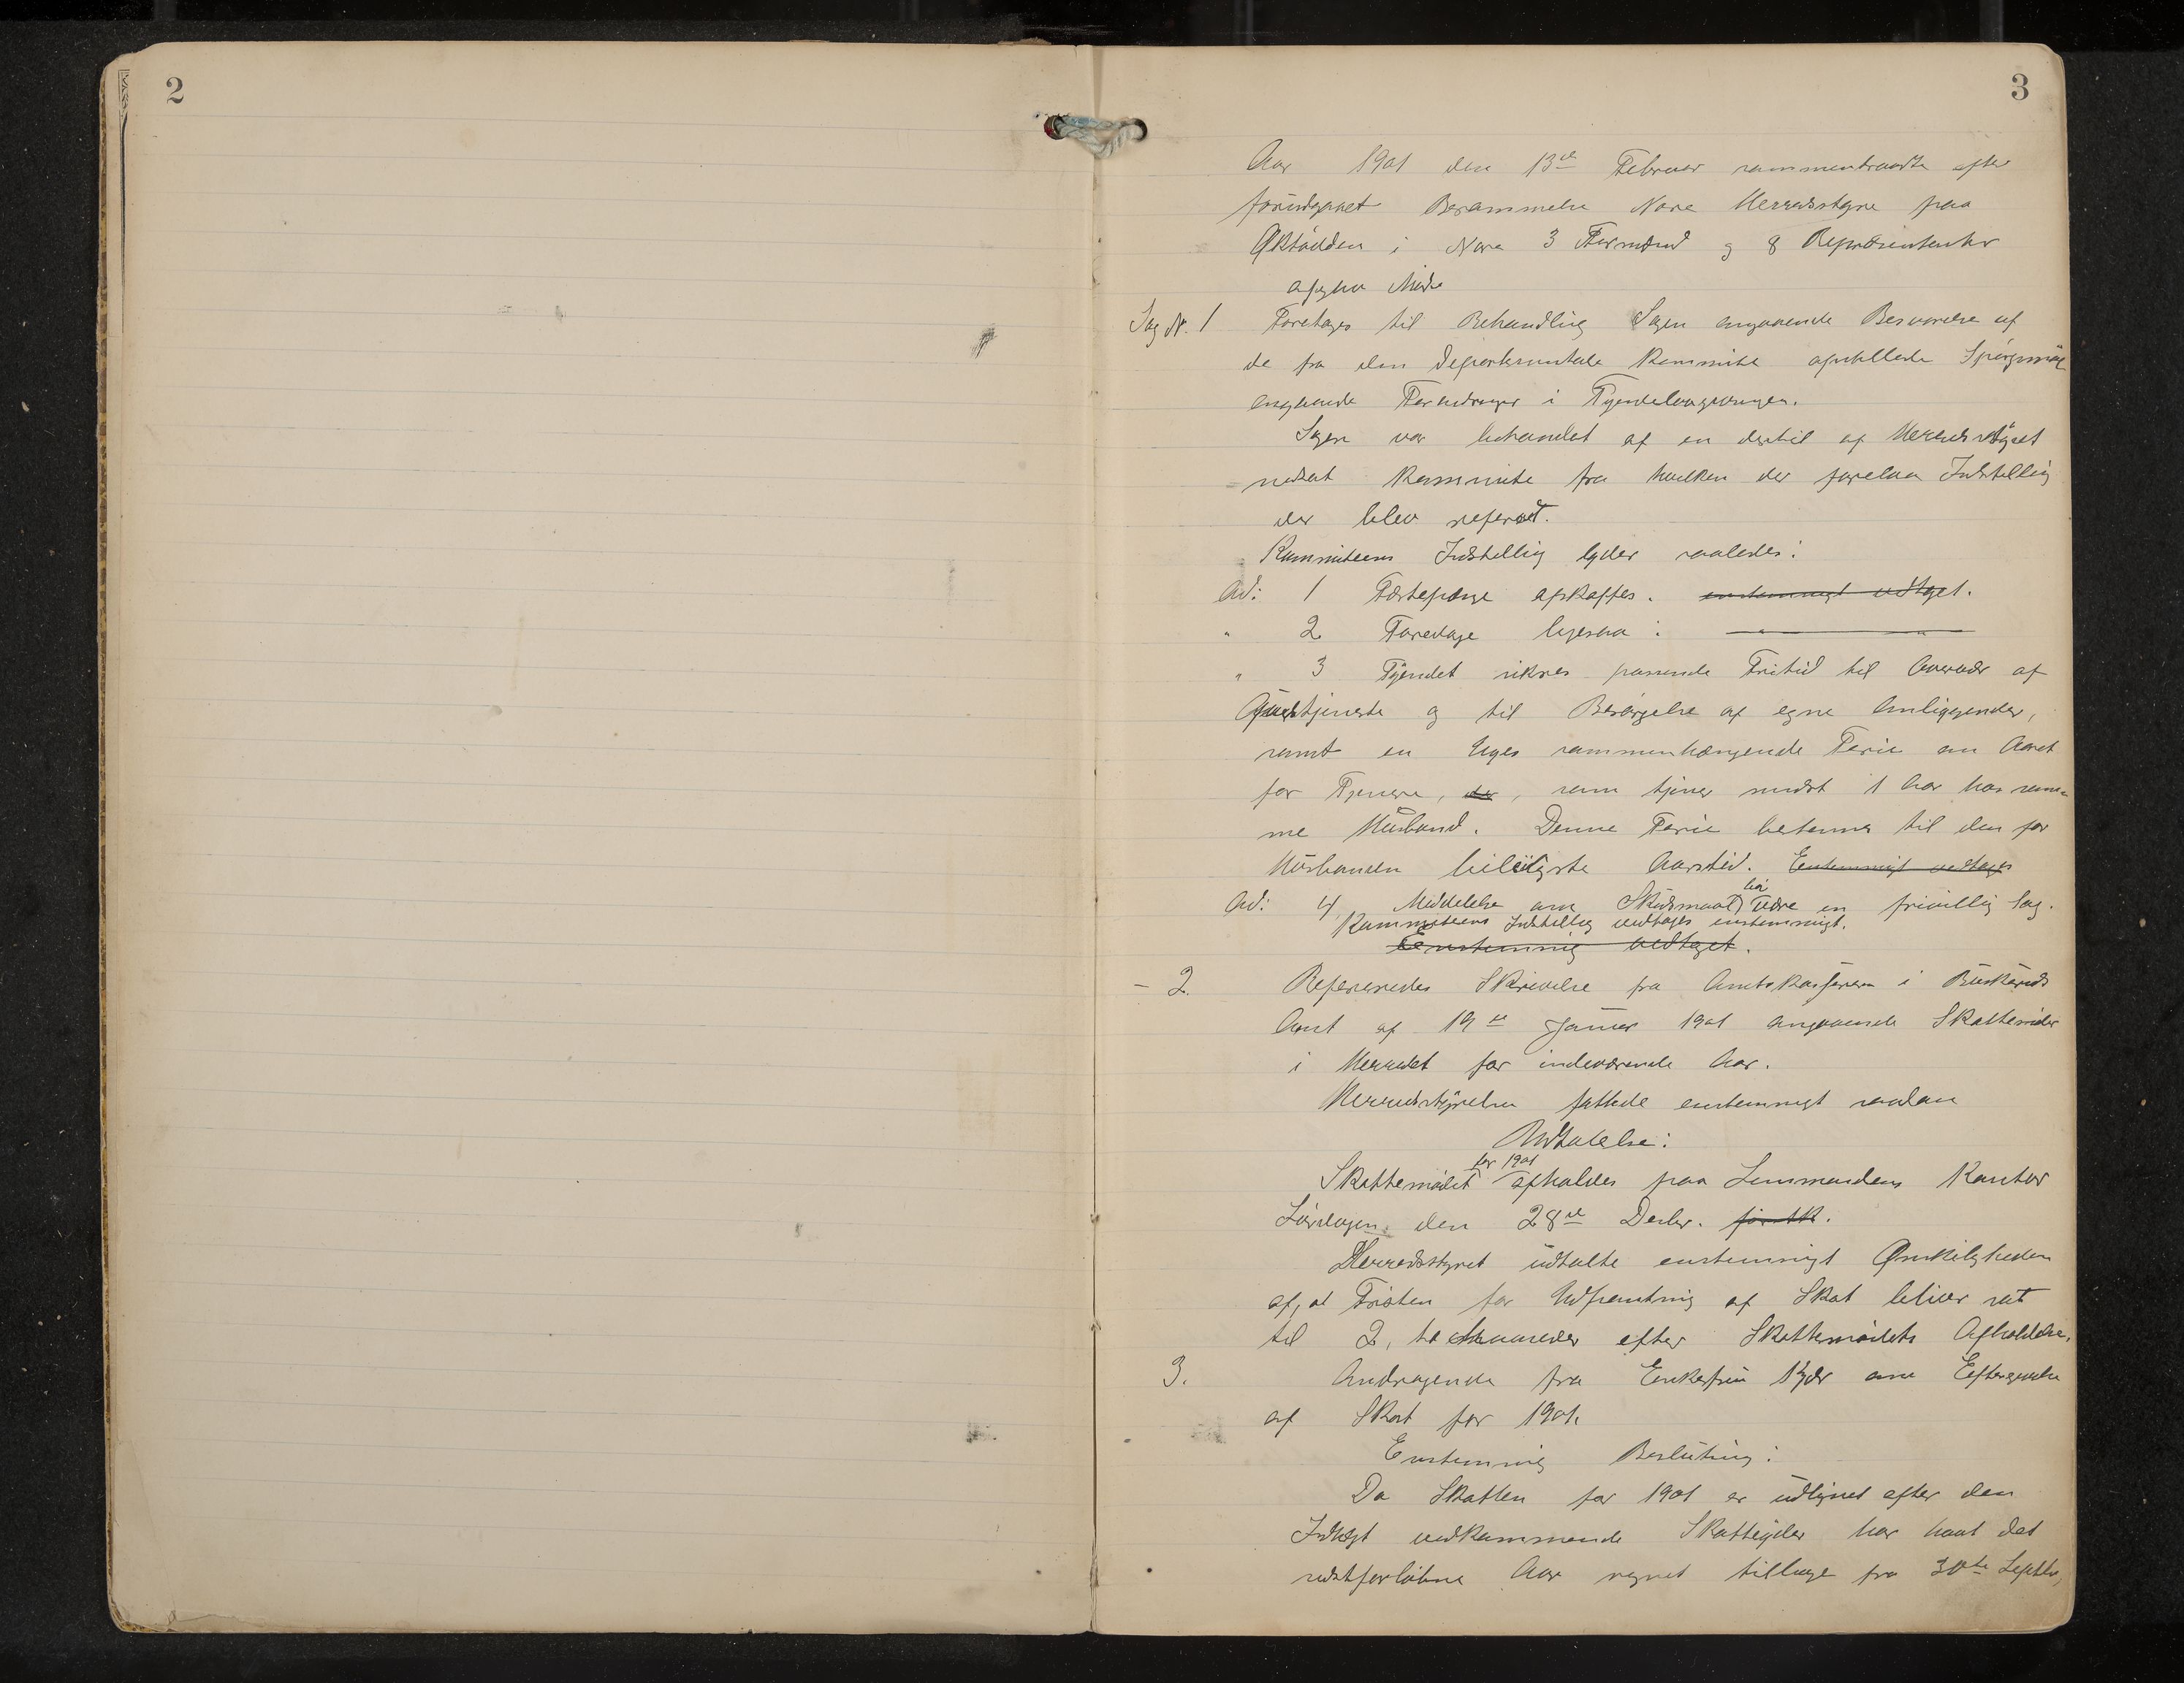 2
3
Aar 1901 den 13de Februar sammentraadte efter
forudgaaet Berammelse Nore Herredsstyre paa
i Nore 3 Formænd og 8 Repræsentanter
afgav Møde
Sag Nr. 1 Foretages til Behandling Sagen angaaende Besvarelse af
de fra den departementale Kommite opstillede Spørgsmaal
angaaende Forandringer i Tyendelovgivningen.
Sagen var behandlet af en dertil af Herredsstyret
nedsat Kommite fra hvilken der forelaa Indstilling
der blev referert.
Kommiteens Indstilling lyder saaledes:
Ad: 1 Fæstepenge afskaffes. enstemmigt vedtaget.
" 2 Faredage ligesaa: — " —
" 3 Tyendet sikres passende Fritid til Overvær af
Gudstjeneste og til Besørgelse af egne Anliggender,
samt en Uges sammenhængende Ferie om Aaret
for Tjenere, der, som tjener mindst 1 Aar hos sam-
me Husbond. Denne Ferie bestemmes til den for
Husbonden beleiligste Aarstid. Enstemmigt vedtages
Ad: 4 Meddelelse om Skudsmaal bør være en frivillig Sag.
Kommiteens Indstilling vedtages enstemmigt.
Enstemmig vedtaget.
- 2. Refereredes Skrivelse fra Amtskasseren i Buskeruds
Amt af 19de Januar 1901 angaaende Skattemøder
i Herredet for indeværende Aar.
Herredsstyrelsen fattede enstemmigt saadan
Udtalelse:
Skattemødet for 1901 afholdes paa Lensmandens Kontor
Lørdagen den 28de Decbr.
Herredsstyret udtalte enstemmigt Ønskeligheden
af, at Fristen for Udpantning af Skat bliver sat
til 2, to Maaneder efter Skattemødets Afholdelse.
3. Andragende fra Enkefru om Eftergivelse
af Skat for 1901.
Enstemmig Beslutning:
Da Skatten for 1901 er udlignet efter den
Indtægt vedkommende Skatteyder har havt det
sidstforløbne Aar regnet tilbage fra 30te Septbr,